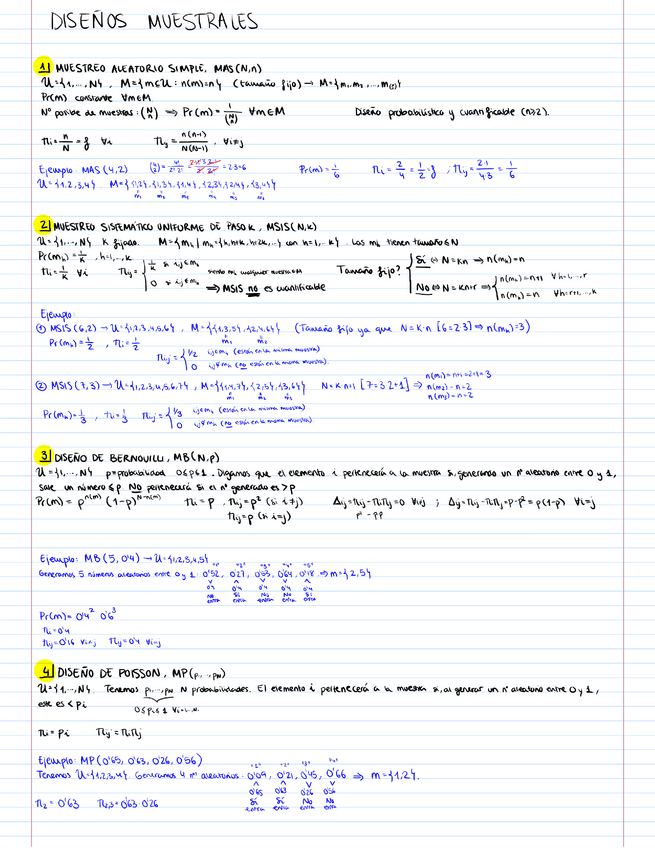 DISEÑOS MUESTRALES
1 MUESTREO ALEATORIO SIMPLE, MAS(N,n)
U={1,...,N}, M={m∈U : n(m)=n} (tamaño fijo) → M={m₁,m₂,...,m_(N n)}
Pr(m) constante ∀m∈M
Nº posible de muestras: (N n) ⟹ Pr(m)= 1/(N n) ∀m∈M Diseño probabilístico y cuantificable (n≥2).
πi= n/N =f ∀i πij= n(n-1)/N(N-1), ∀i≠j
Ejemplo: MAS(4,2) (4 2)= 4!/2!·2! = = 2·3=6 Pr(m)= 1/6 πi= 2/4 = 1/2 =f, πij= 2·1/4·3 = 1/6
U={1,2,3,4} M={{1,2},{1,3},{1,4},{2,3},{2,4},{3,4}}
m₁ m₂ m₃ m₄ m₅ m₆
2 MUESTREO SISTEMÁTICO UNIFORME DE PASO K, MSIS(N,K)
U={1,...,N} K fijado. M={mh | mh={h,h+k,h+2k,...} con h=1,...k}. Las mh tienen tamaño≤N
Pr(mh)= 1/K, h=1,...,k
πi= 1/K ∀i πij= { 1/K si i,j∈mh
0 si i,j∉mh siendo mh cualquier muestra∈M
⟹ MSIS no es cuantificable
Tamaño fijo? { Sí ⇔ N=kn ⟹ n(mh)=n
No ⇔ N=Kn+r ⟹ { n(mh)=n+1 ∀h=1,...,r
n(mh)=n ∀h=r+1,...,k
Ejemplo:
① MSIS(6,2) → U={1,2,3,4,5,6}, M={{1,3,5},{2,4,6}} (Tamaño fijo ya que N=K·n [6=2·3] ⟹ n(mh)=3)
m₁ m₂
Pr(mh)= 1/2, πi= 1/2
πij= { 1/2 i,j∈mh (están en la misma muestra)
0 i,j∉mh (no están en la misma muestra).
② MSIS(7,3) → U={1,2,3,4,5,6,7}, M={{1,4,7},{2,5},{3,6}} N=K·n+1 [7=3·2+1] ⟹ n(m₁)=n+1=2+1=3
n(m₂)=n=2
n(m₃)=n=2
m₁ m₂ m₃
Pr(mh)= 1/3, πi= 1/3 πij= { 1/3 i,j∈mh (están en la misma muestra)
0 i,j∉mh (no están en la misma muestra).
3 DISEÑO DE BERNOUILLI, MB(N,p)
U={1,...,N} p=probabilidad 0≤p≤1. Digamos que el elemento i pertenecerá a la muestra si, generando un nº aleatorio entre 0 y 1,
sale un número ≤p. NO pertenecerá si el nº generado es >p
Pr(m)= p^n(m) (1-p)^N-n(m) πi=p, πij=p² (si i≠j) Δij=πij-πiπj=0 ∀i≠j ; Δij=πij-πiπj=p-p²=p(1-p) ∀i=j
πij=p (si i=j) p²-p·p
Ejemplo: MB(5,0'4) → U={1,2,3,4,5}
"1" "2" "3" "4" "5"
Generamos 5 números aleatorios entre 0 y 1: 0'52, 0'27, 0'53, 0'64, 0'18 ⟹ m={2,5}
v ^ v v ^
0'4 0'4 0'4 0'4 0'4
No Sí No No Sí
entra entra entra entra entra
Pr(m)= 0'4² 0'6³
πi=0'4
πij=0'16 ∀i≠j πij=0'4 ∀i=j
4 DISEÑO DE POISSON, MP(p₁,...,pN)
U={1,...,N}. Tenemos p₁,...,pN N probabilidades. El elemento i pertenecerá a la muestra si, al generar un nº aleatorio entre 0 y 1,
este es < pi 0≤pi≤1 ∀i=1,...N.
πi=pi πij=πiπj
Ejemplo: MP(0'65, 0'63, 0'26, 0'56)
"1" "2" "3" "4"
Tenemos U={1,2,3,4}. Generamos 4 nº aleatorios: 0'09, 0'21, 0'45, 0'66 ⟹ m={1,2}.
^ ^ v v
0'65 0'63 0'26 0'56
Sí Sí No No
entra entra entra entra
π₂=0'63 π₂,₃=0'63·0'26